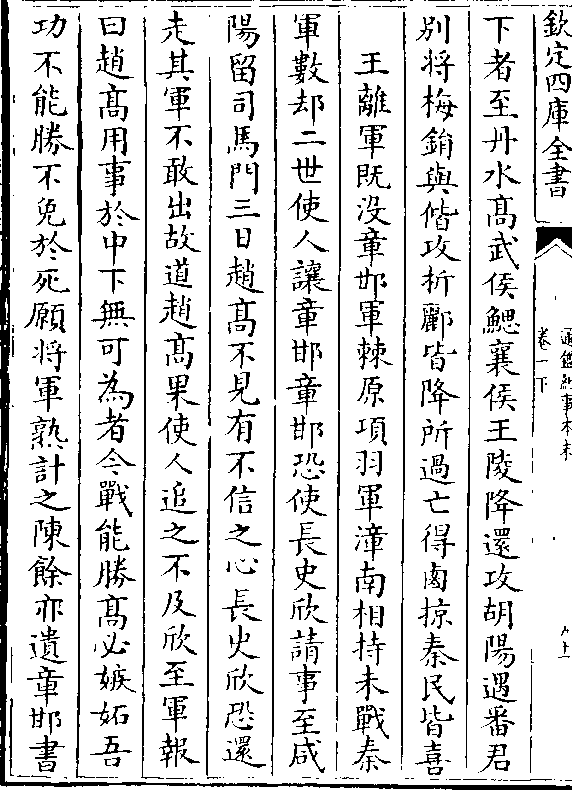 欽定四庫全書
通鑑紀事本末
卷一下
下者至丹水髙武侯鰓襄侯王陵降還攻胡陽遇番君
别将梅鋗與偕攻析酈皆降所過亡得鹵掠秦民皆喜
王離軍既没章邯軍棘原項羽軍漳南相持未戰秦
軍數却二世使人讓章邯章邯恐使長史欣請事至咸
陽留司馬門三日趙髙不見有不信之心長史欣恐還
走其軍不敢出故道趙髙果使人追之不及欣至軍報
曰趙髙用事於中下無可為者今戰能勝髙必嫉妬吾
功不能勝不免於死願将軍熟計之陳餘亦遺章邯書